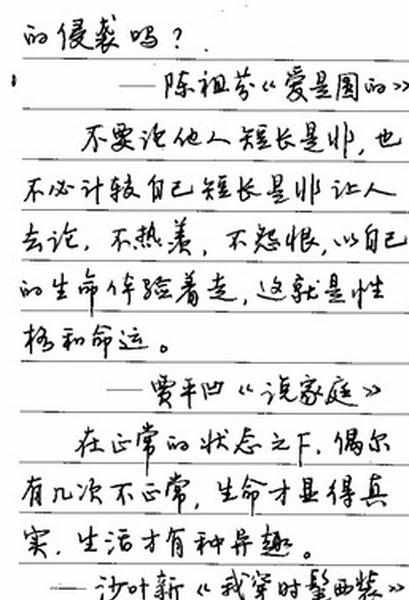 的侵袭吗？
——陈祖芬《爱是圆的》
不要论他人短长是非，也
不必计较自己短长是非让人
去论，不热羡，不怨恨，以自己
的生命体验着走，这就是性
格和命运。
——贾平凹《说家庭》
在正常的状态之下，偶尔
有几次不正常，生命才显得真
实，生活才有种异趣。
——沙叶新《我穿时髦西装》